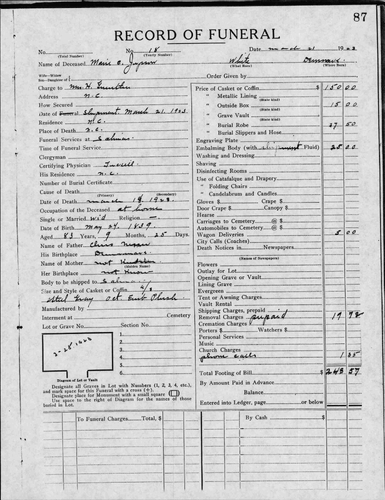 87
RECORD OF FUNERAL
No.
(Total Number)
No. 18
(Yearly Number)
Date March 21
Name of Deceased Marie
White
(What Race)
Denmark
(Where Born)
Wife-Widow
Son-Daughter of
Order Given by
Charge to Mr. H.
Address N.C.
How Secured
Date of Shipment March 21, 1923
Residence N.C.
Place of Death N.C.
Funeral Services at
Time of Funeral Service
Clergyman
Certifying Physician
His Residence N.C.
Number of Burial Certificate
Cause of Death
(Primary)
(Secondary)
Date of Death March 19 1923
Occupation of the Deceased at home
Single or Married wid Religion -
Date of Birth May 24, 1839
Aged 83 Years, 9 Months, 25 Days
Name of Father
His Birthplace Denmark
Name of Mother not
(Maiden Name)
Her Birthplace not
Body to be shipped to
Size and Style of Casket or Coffin
Steel Gray Oct
Manufactured by
Interment at Cemetery
Lot or Grave No. Section No.
Diagram of Lot or Vault
Designate all Graves in Lot with Numbers (1, 2, 3, 4, etc.),
and mark space for this Funeral with a cross (+).
Designate place for Monument with a small square
Use space to right of Diagram for the names of those
buried in Lot.
Price of Casket or Coffin $ 150 00
" Metallic Lining
(State kind)
" Outside Box 15 00
(State kind)
" Grave Vault
(State kind)
" Burial Robe 27 50
(State kind)
" Burial Slippers and Hose
Engraving Plate
Embalming Body (with Fluid) 25 00
Washing and Dressing
Shaving
Disinfecting Rooms
Use of Catafalque and Drapery
" Folding Chairs
" Candelabrum and Candles
Gloves $ Crape $
Door Crape $ Canopy $
Hearse
Carriages to Cemetery @ $
Automobiles to Cemetery @ $
Wagon Deliveries 5 00
City Calls (Coaches)
Death Notices in Newspapers
(Names of Newspapers)
Flowers
Outlay for Lot
Opening Grave or Vault
Lining Grave
Evergreen
Tent or Awning Charges
Vault Rental
Shipping Charges, prepaid
Removal Charges prepaid 19 92
Cremation Charges
Porters $ Watchers $
Personal Services
Music
Church Charges
phone calls
Total Footing of Bill $ 243
By Amount Paid in Advance
Balance
Entered into Ledger, page or below.
To Funeral Charges, Total, $
By Cash $